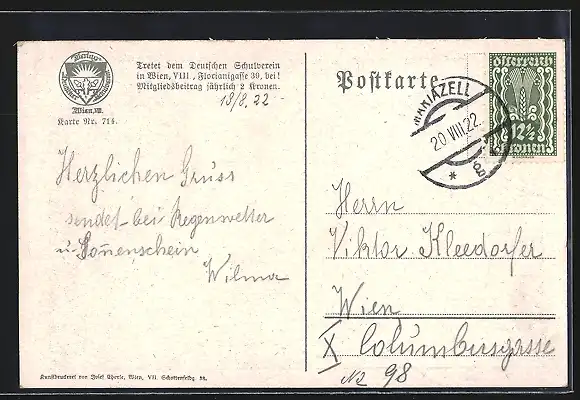 Tretet dem Deutschen Schulverein
in Wien, VIII, Florianigasse 39, bei!
Mitgliedsbeitrag jährlich 2 Kronen.
19/8. 22
Wien, VIII.
Karte Nr. 716.
Herzlichen Gruss
sendet bei Regenwetter
u. Sonnenschein
Wilma
Kunstdruckerei von Josef Eberle, Wien, VII. Schottenfeldg.
Postkarte
MARIAZELL
20.VIII.22.
* g
Österreich
12½
Kronen
Herrn
Viktor Kleedorfer
Wien
X Columbusgasse
No 98